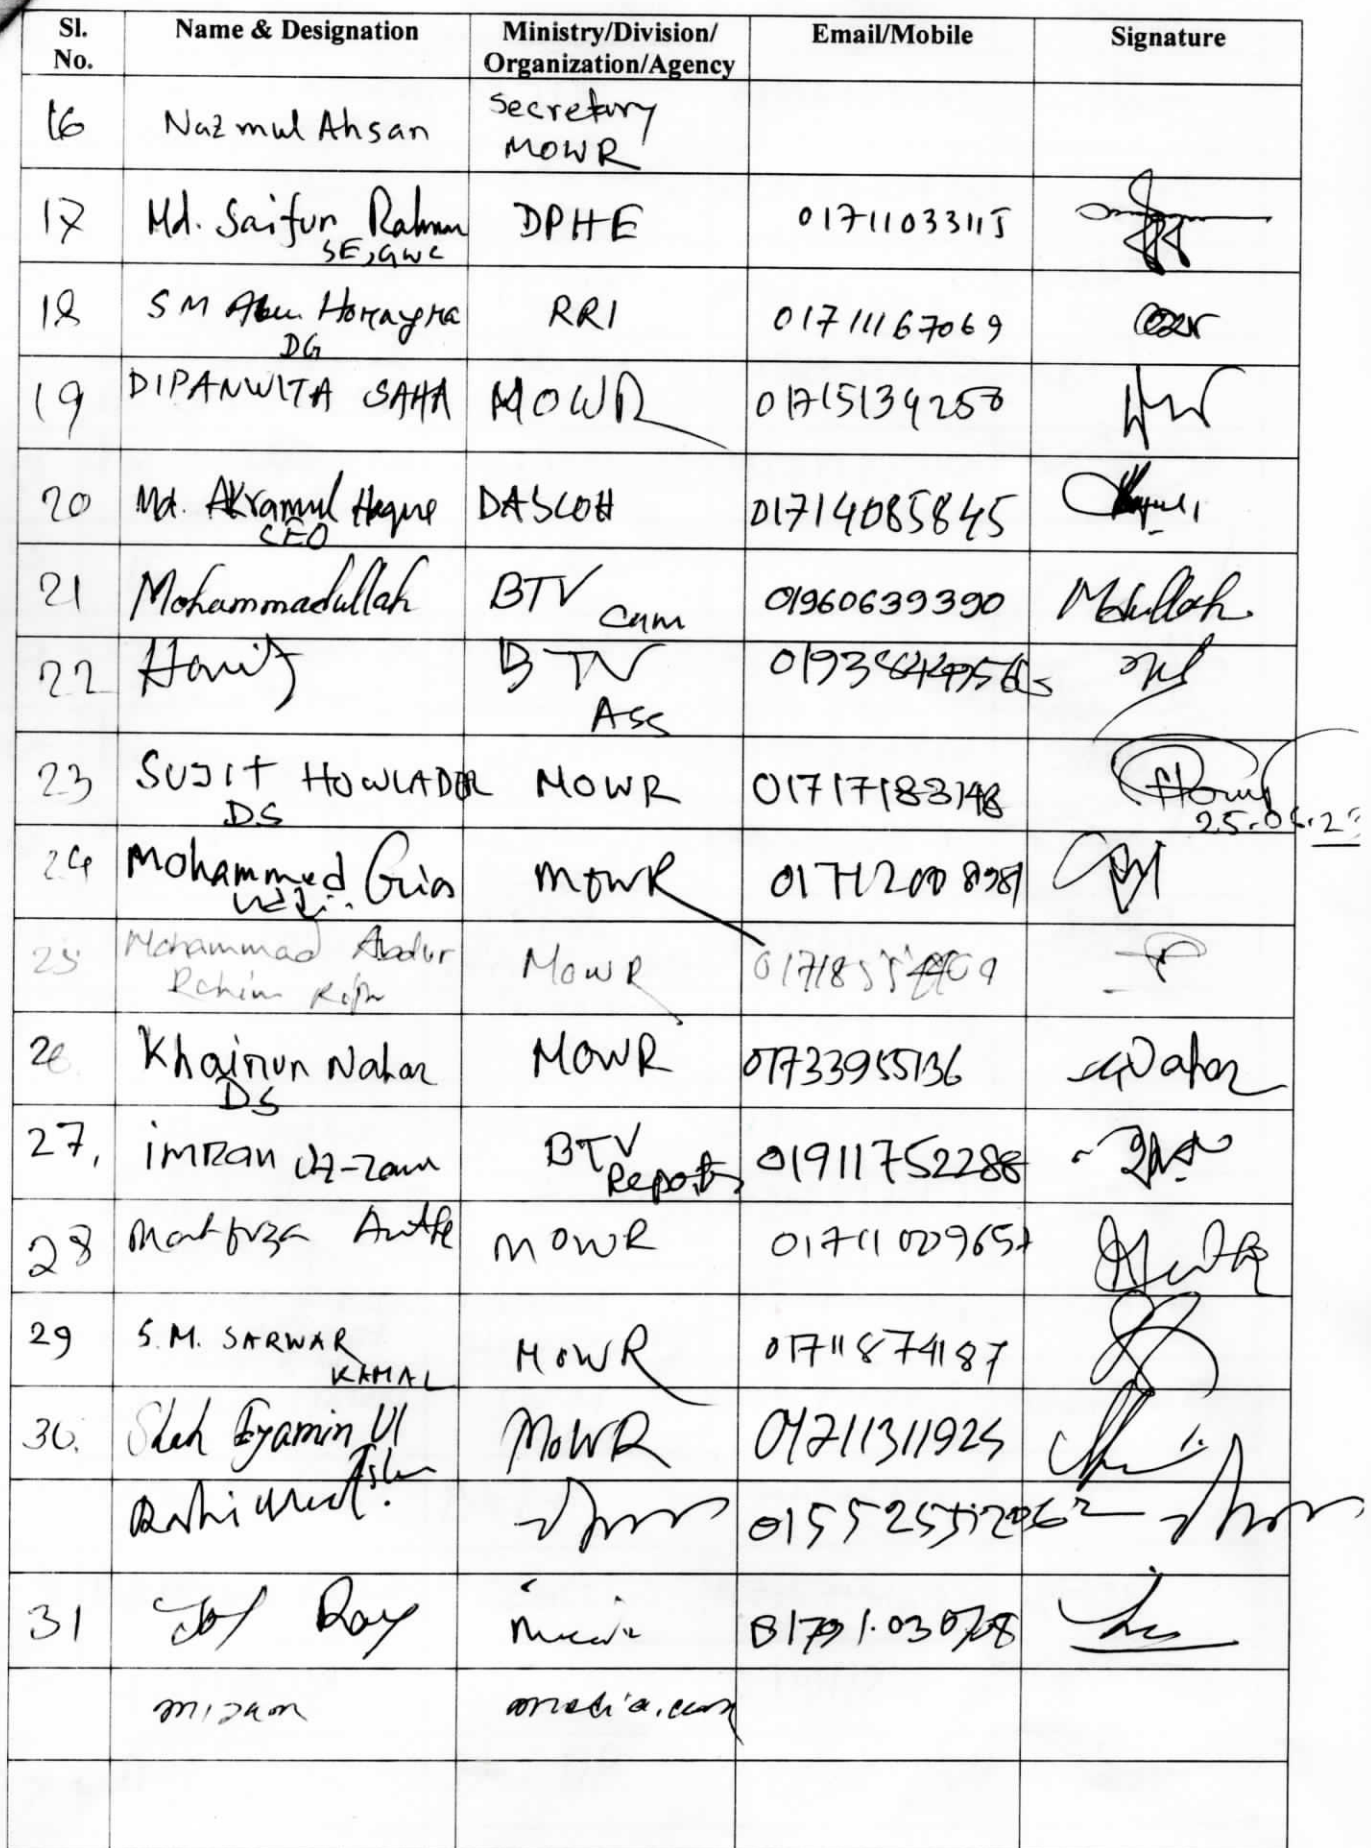 Sl. No. Name & Designation Ministry/Division/ Organization/Agency Email/Mobile Signature
16 Nazmul Ahsan Secretary MOWR
17 Md. Saifur Rahman SE, GWC DPHE 01711033115
18 S M Abu Horayra DG RRI 01711167069
19 DIPANWITA SAHA MOWR
20 Md. Akramul Haque CEO DASCOH 01714085845
21 Mohammadullah BTV Cam 01960639390 Mdullah
22 Hanif BTV Ass
23 SUJIT HOWLADER DS MOWR 01717183148
24 Mohammed Gias Uddin MOWR
25 Mohammad Abdur Rahim MOWR
26 Khairun Nahar DS MOWR 01733955136 Nahar
27, imran Uz-zam BTV Reporter 01911752288
28 MOWR
29 S.M. SARWAR KAMAL MOWR 01711874187
30. Shah Eyamin Ul Islam MOWR 01711311925
31 Joy Roy
mizan media.cam